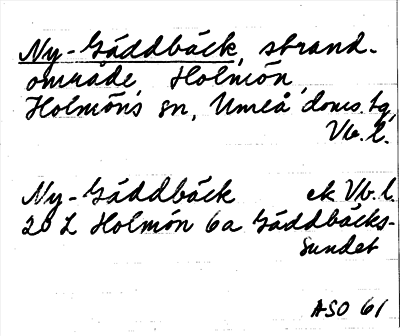 Ny-Gäddbäck, strand-
område, Holmön,
Holmöns sn, Umeå doms.tg,
Vb.l.
Ny-Gäddbäck ek Vb.l.
20 L Holmön 6a Gäddbäcks-
sundet
ASO 61